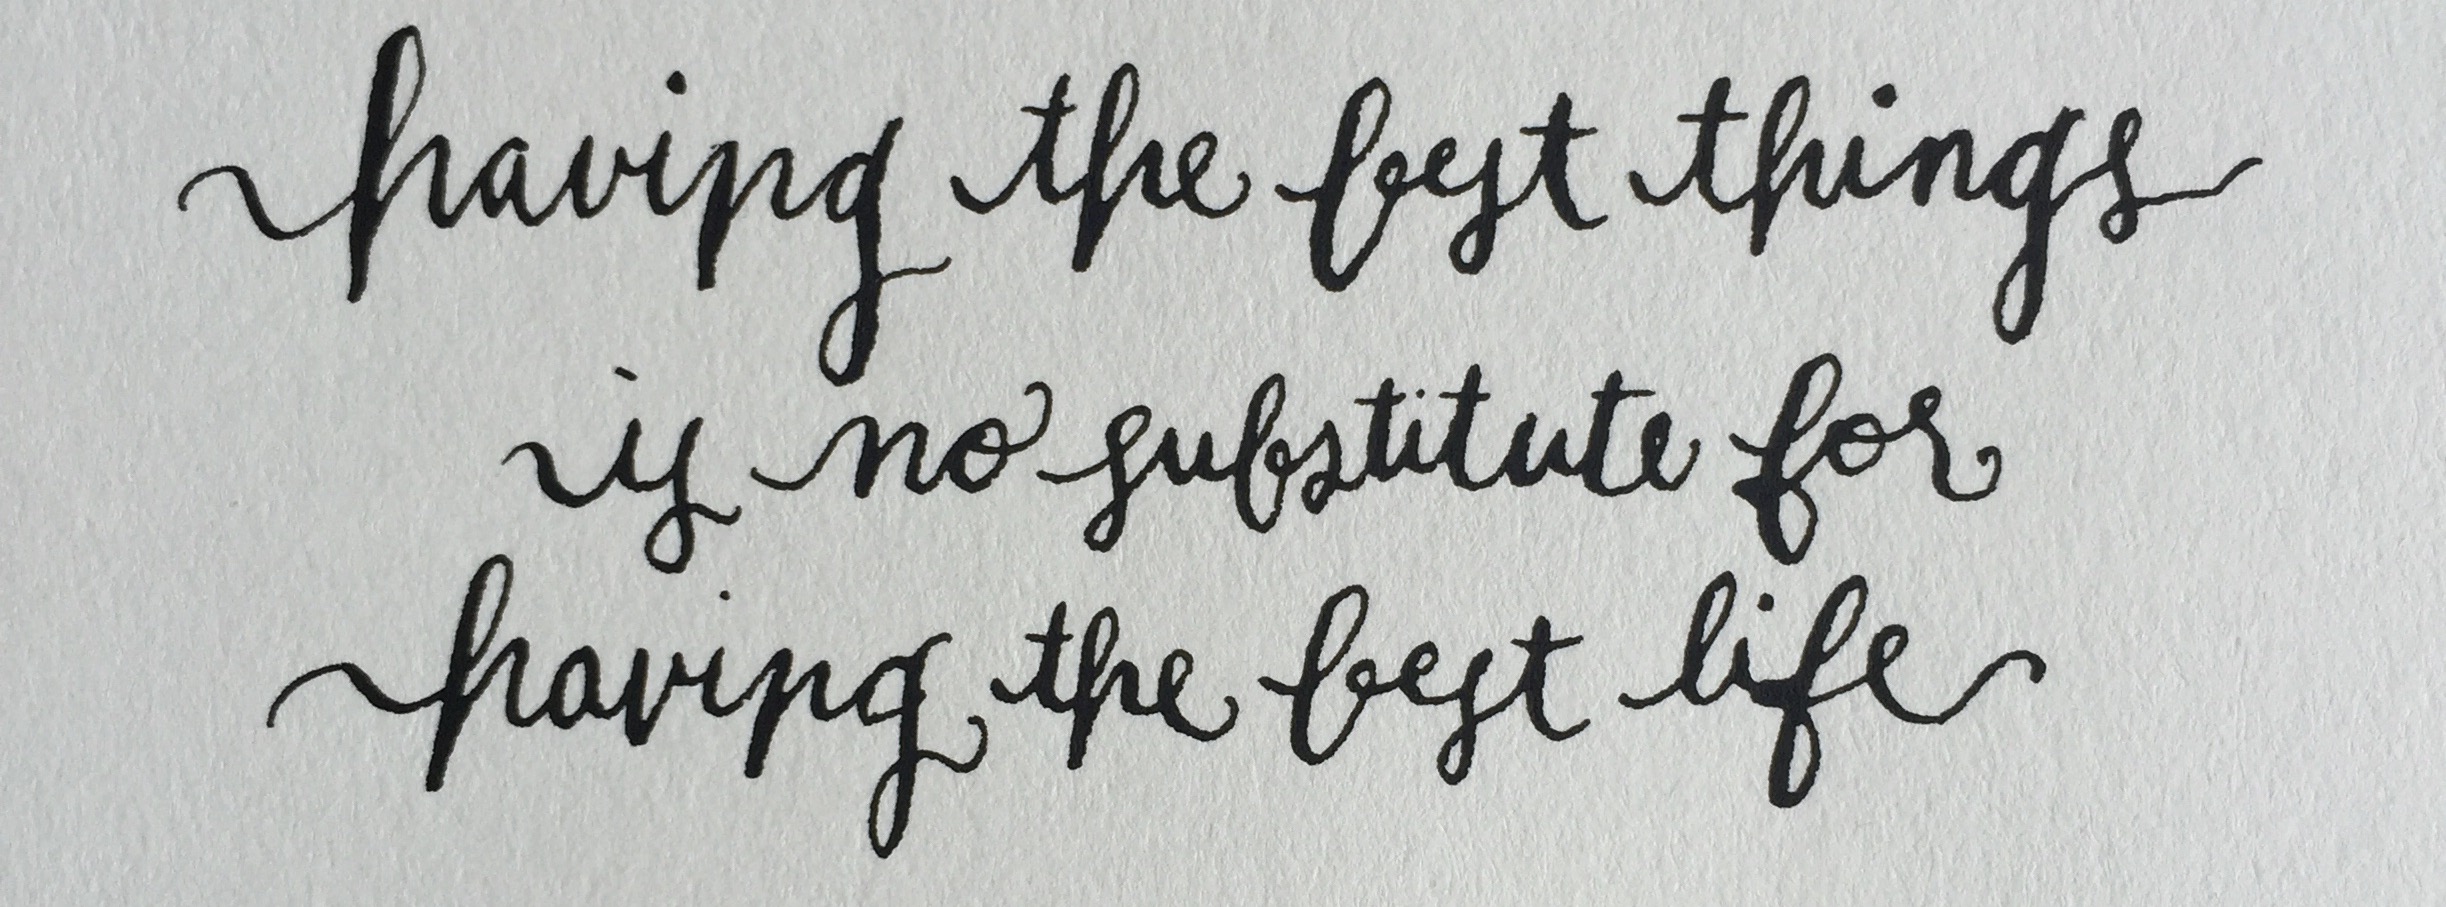 having the best things
is no substitute for
having the best life